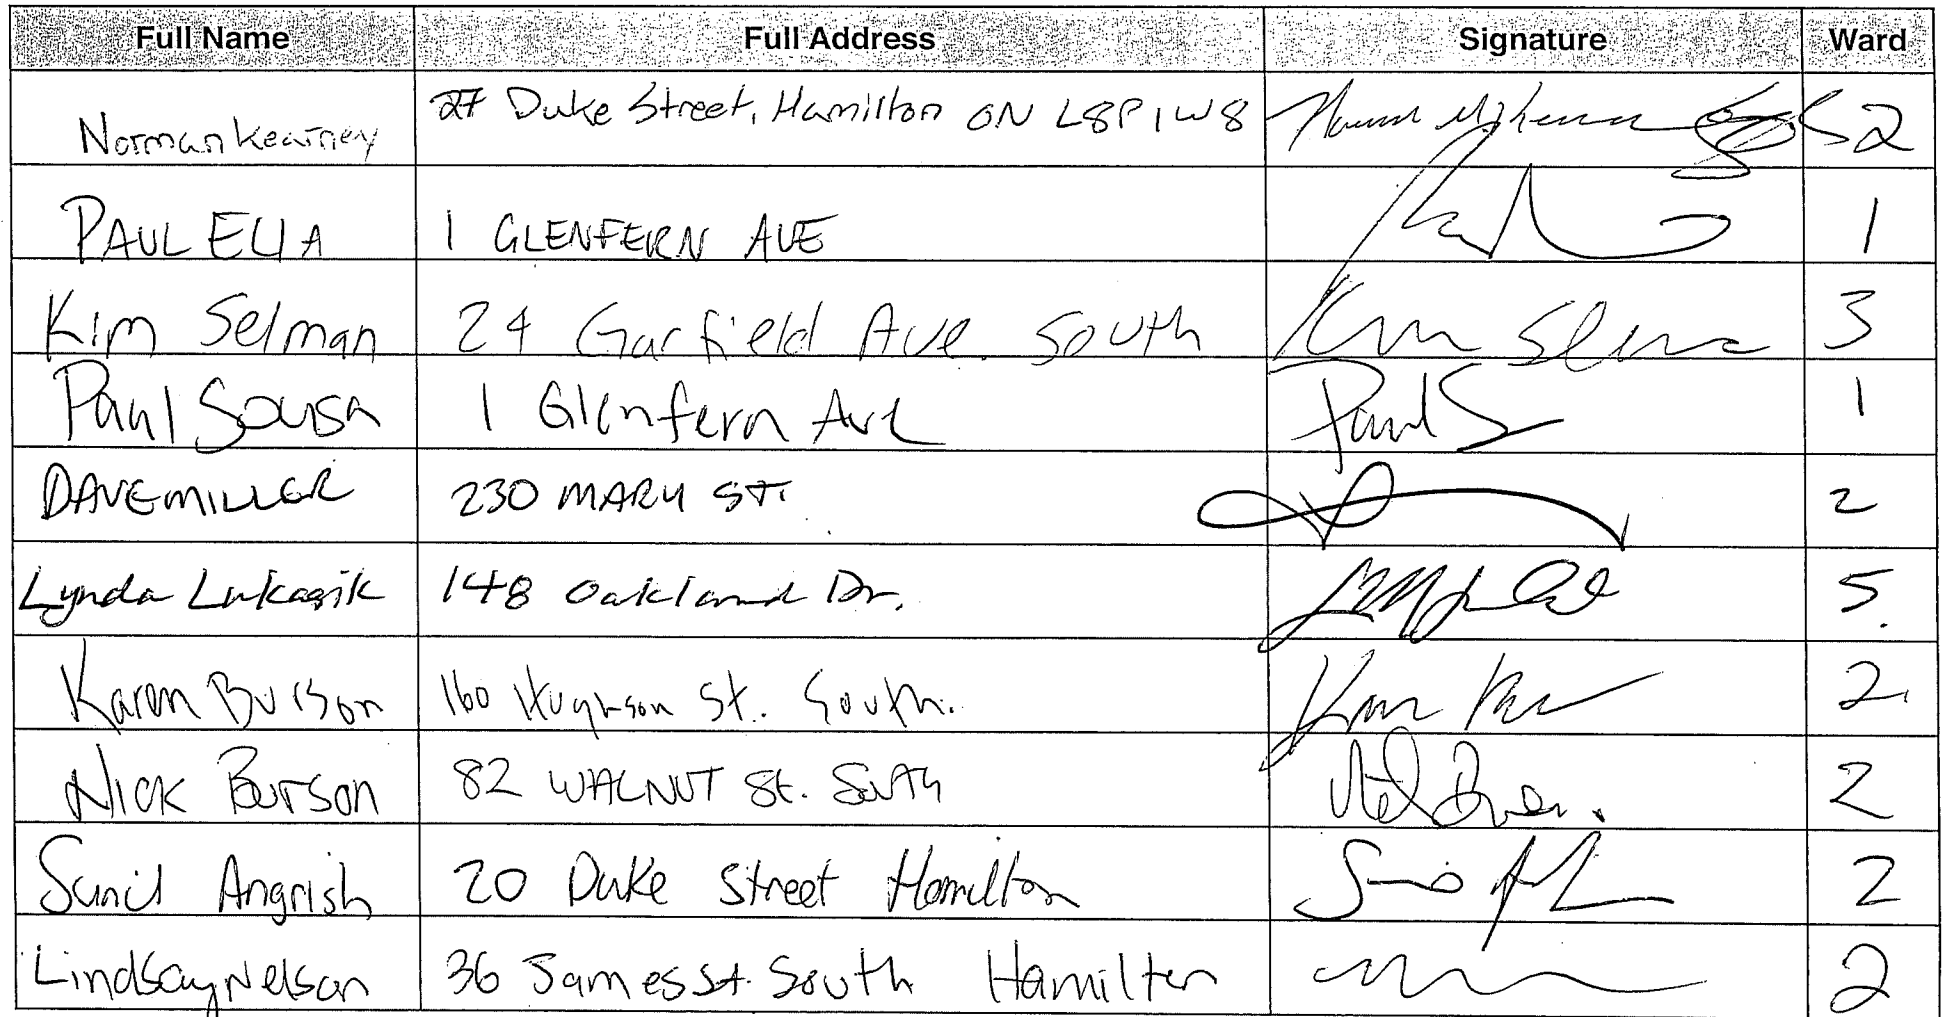 Full Name Full Address Signature Ward
Norman Kearney 27 Duke Street, Hamilton ON L8P 1W8 2
PAUL ELIA 1 GLENFERN AVE 1
Kim Selman 24 Garfield Ave. South Kim 3
Paul Sousa 1 Glenfern Ave Paul S 1
DAVE MILLER 230 MARY ST. 2
Lynda Lukasik 148 Oakland Dr. 5.
Karen Burson 160 Hughson St. South. 2.
Nick Burson 82 WALNUT St. South 2
Sunil Angrish 20 Duke Street Hamilton 2
Lindsay Nelson 36 James St. South Hamilton 2